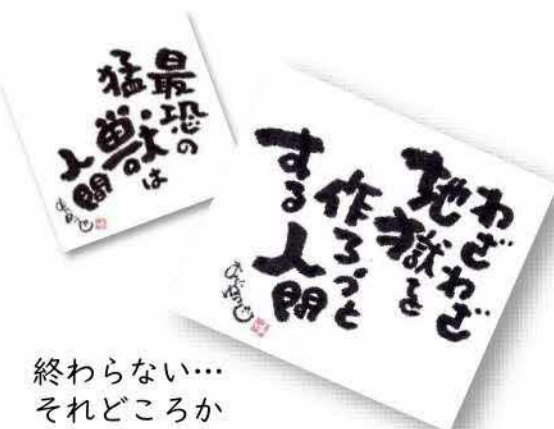 最恐の
猛獣は
人間
わざわざ
地獄を
作ろうと
する人間
終わらない…
それどころか